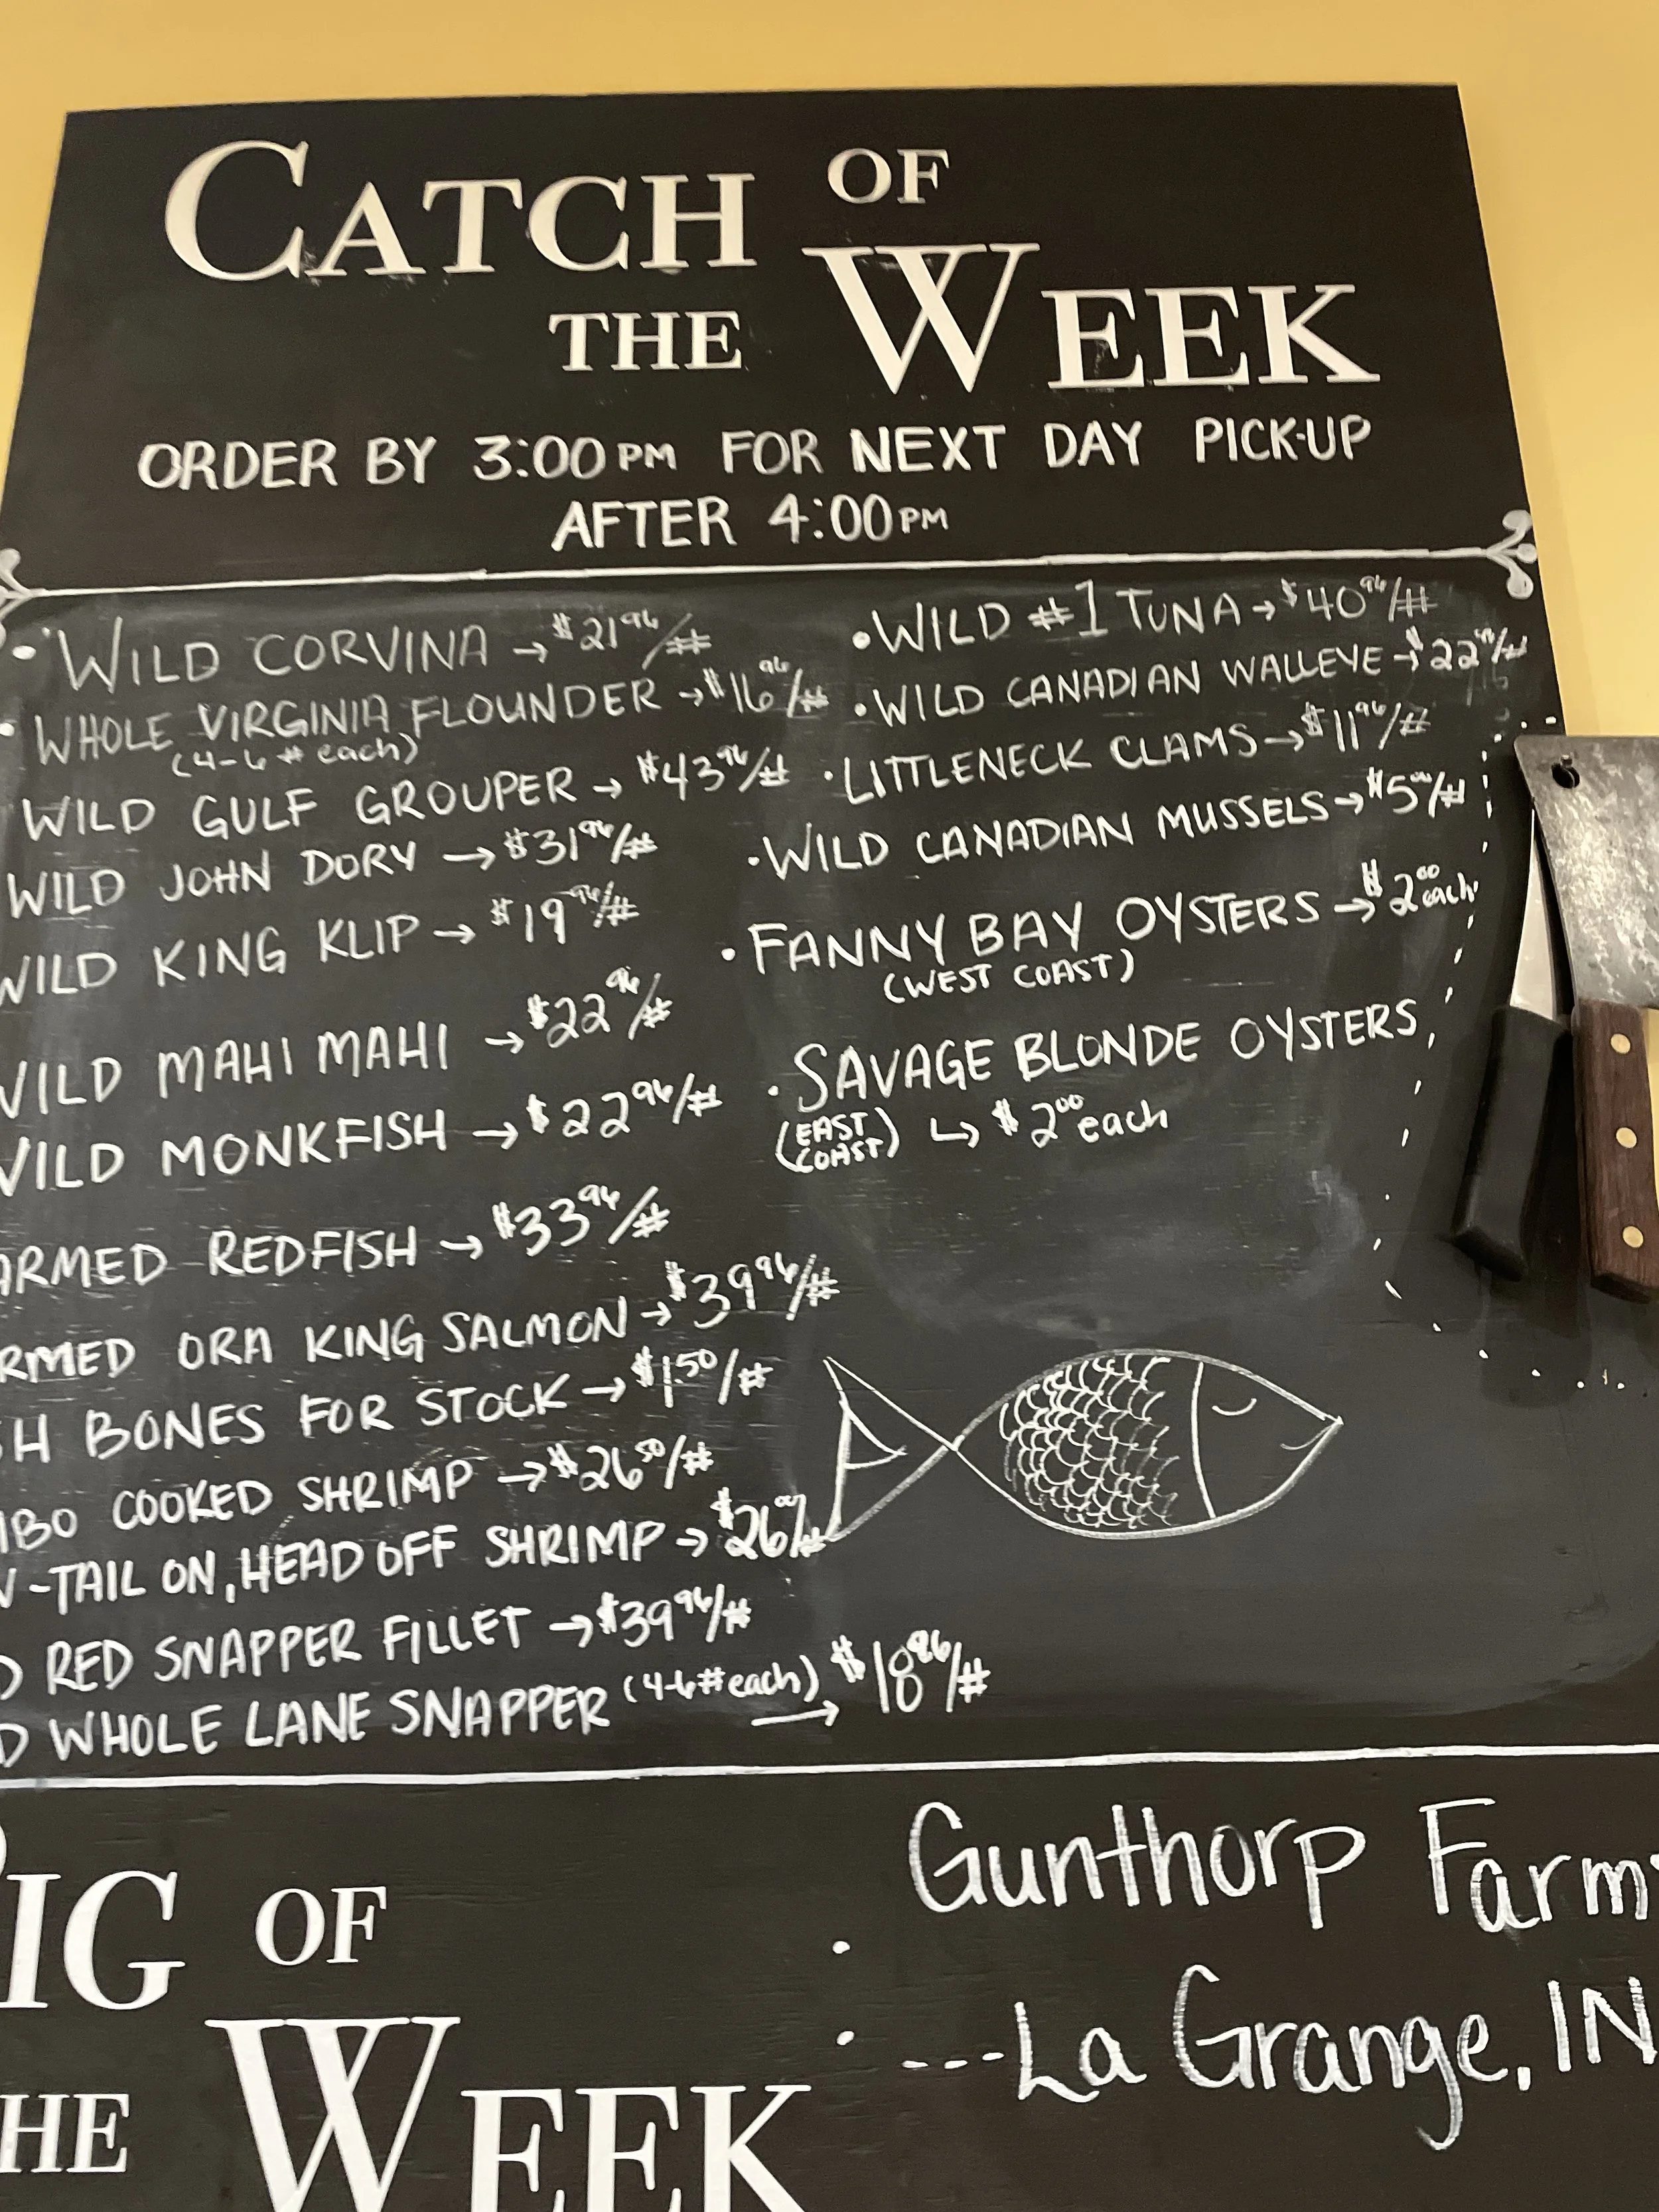 CATCH OF
THE WEEK
ORDER BY 3:00PM FOR NEXT DAY PICK-UP
AFTER 4:00PM
• WILD CORVINA → $21 96/#
• WHOLE VIRGINIA FLOUNDER → $16 96/#
(4-6 # each)
WILD GULF GROUPER → $43 96/#
WILD JOHN DORY → $31 96/#
WILD KING KLIP → $19 96/#
WILD MAHI MAHI → $22 96/#
WILD MONKFISH → $22 96/#
ARMED REDFISH → $33 96/#
RMED ORA KING SALMON → $39 96/#
SH BONES FOR STOCK → $1.50/#
MBO COOKED SHRIMP → $26 50/#
-TAIL ON, HEAD OFF SHRIMP → $26
D RED SNAPPER FILLET → $39 96/#
D WHOLE LANE SNAPPER (4-6# each) → $18 96/#
• WILD #1 TUNA → $40 96/#
• WILD CANADIAN WALLEYE → $22
• LITTLENECK CLAMS → $11 96/#
• WILD CANADIAN MUSSELS → $5
• FANNY BAY OYSTERS → $2 00 each
(WEST COAST)
• SAVAGE BLONDE OYSTERS
(EAST COAST) ↳ $2 00 each
PIG OF
THE WEEK
Gunthorp Farms
---La Grange, IN